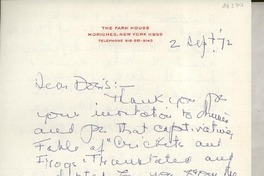 THE FARM HOUSE
MORICHES, NEW YORK 11955
TELEPHONE 516 281-9140
2 Sept. '72
Dear Doris:—
Thank you for
your invitation to dinner
and for that captivating
Fable of "Crickets and
Frogs" Translated and